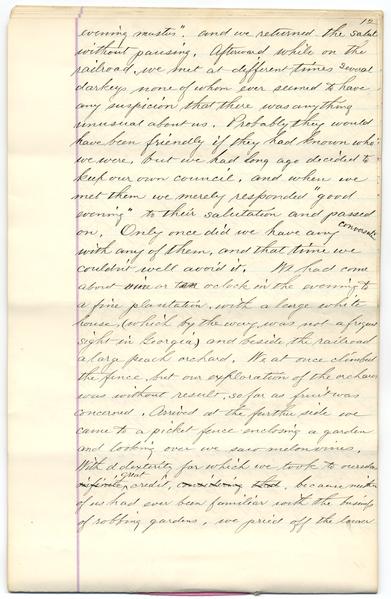 12
evening mastis". and we returned the salut
without pausing. Afterward while on the
railroad, we met at different times several
darkeys none of whom ever seemed to have
any suspicion that there was anything
unusual about us. Probably they would
have been friendly if they had known who
we were, but we had long ago decided to
keep our own council, and when we
met them we merely responded "good
evening" to their salutation and passed
on. Only once did we have any conversati
with any of them, and that time we
couldn't well avoid it. We had come
about nine or ten oclock in the evening to
a fine plantation, with a large white
house, (which by the way was not a frequent
sight in Georgia) and beside the railroad
a large peach orchard. We at once climbed
the fence, but our exploration of the orchard
was without result, so far as fruit was
concerned. Arrived at the further side we
came to a picket fence enclosing a garden
and looking over we saw melon vines.
With a dexterity for which we took to ourselves
infinite great credit, considering that, because neither
of us had ever been familiar with the business
of robbing gardens, we pried off the lower